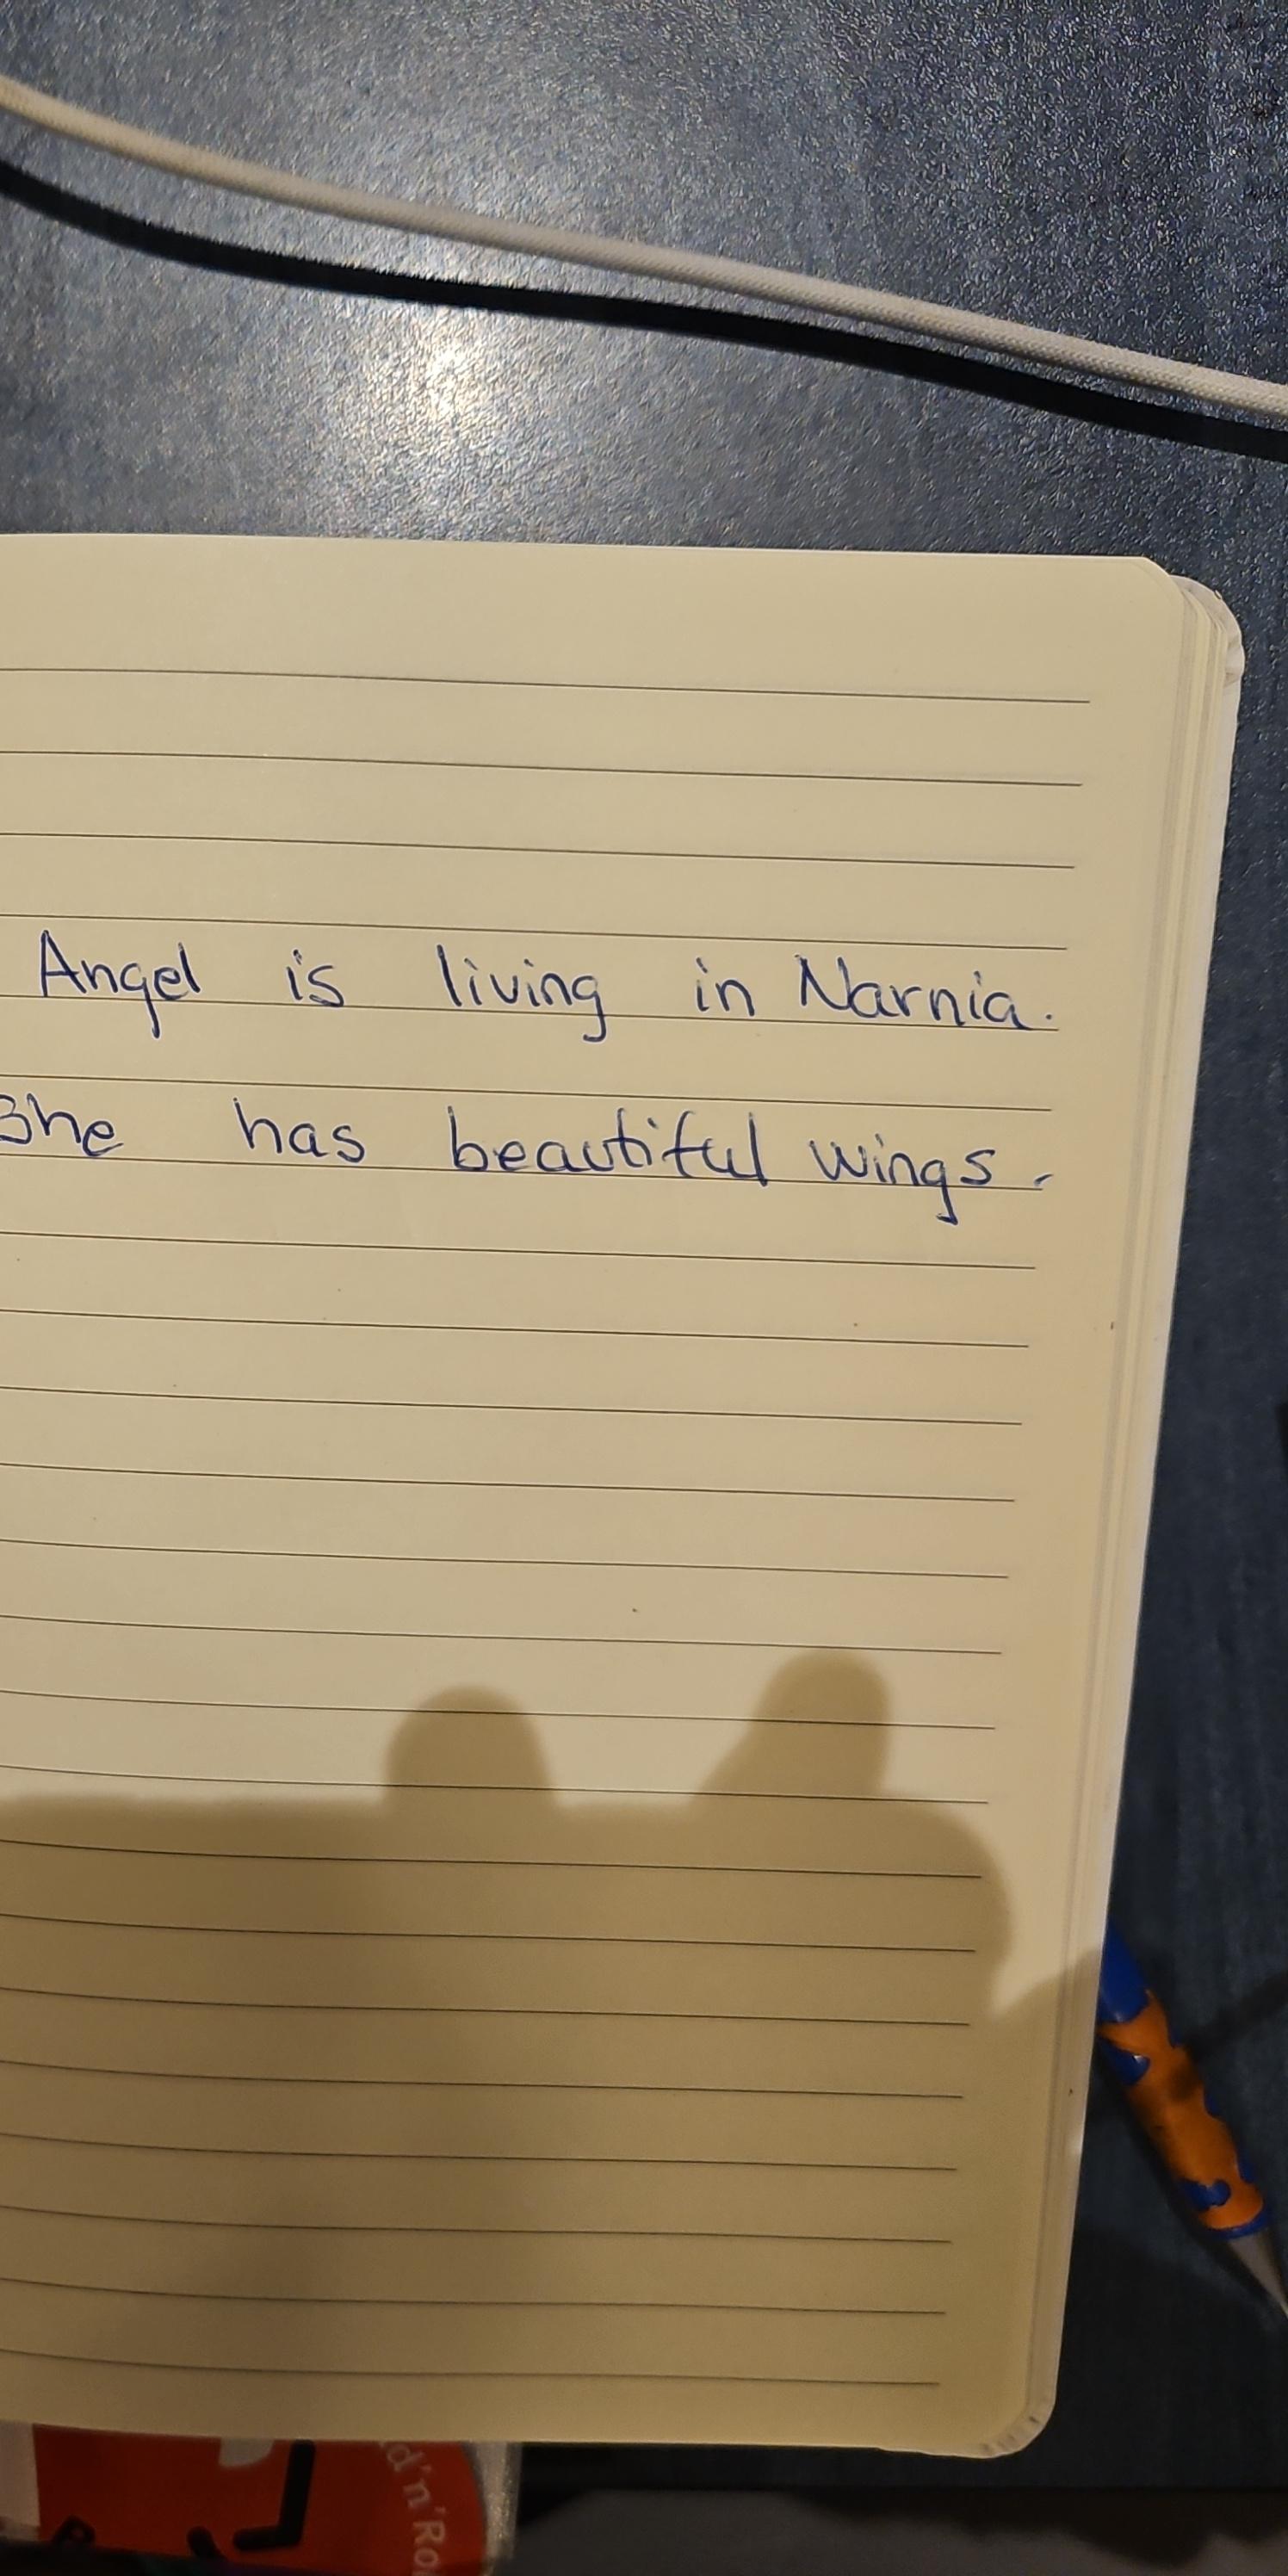 Angel is living in Narnia.
She has beautiful wings.
d'n'Ro